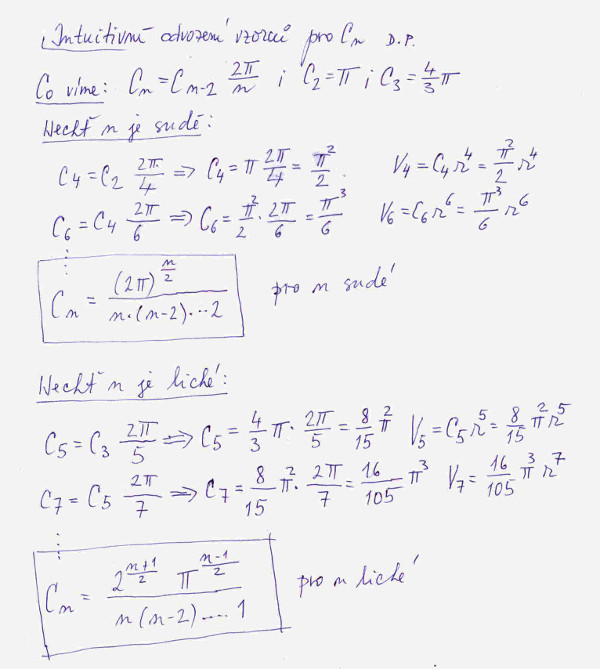 Intuitivní odvození vzorců pro Cn D.P.
Co víme: Cn = Cn-2 2π/n ; C2 = π ; C3 = 4/3 π
Nechť n je sudé:
C4 = C2 2π/4 ⇒ C4 = π 2π/4 = π²/2 V4 = C4 r⁴ = π²/2 r⁴
C6 = C4 2π/6 ⇒ C6 = π²/2 · 2π/6 = π³/6 V6 = C6 r⁶ = π³/6 r⁶
⋮
Cn = (2π)^(n/2) / n·(n-2)···2 pro n sudé
Nechť n je liché:
C5 = C3 2π/5 ⇒ C5 = 4/3 π · 2π/5 = 8/15 π² V5 = C5 r⁵ = 8/15 π² r⁵
C7 = C5 2π/7 ⇒ C7 = 8/15 π² · 2π/7 = 16/105 π³ V7 = 16/105 π³ r⁷
⋮
Cn = 2^((n+1)/2) π^((n-1)/2) / n(n-2)....1 pro n liché